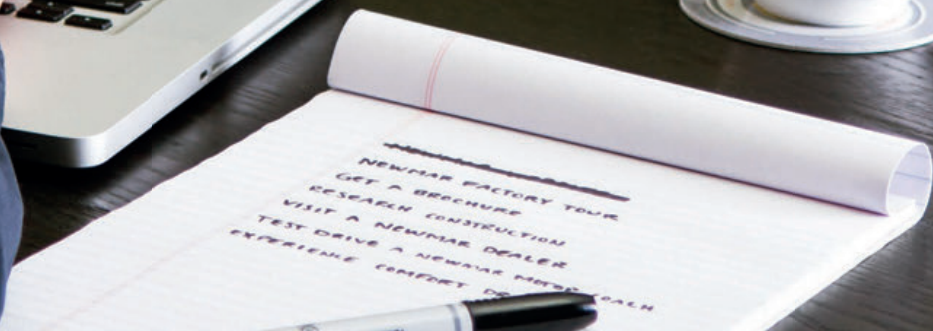 NEWMAR FACTORY TOUR
GET A BROCHURE
RESEARCH CONSTRUCTION
VISIT A NEWMAR DEALER
TEST DRIVE A NEWMAR MOTOR COACH
EXPERIENCE COMFORT